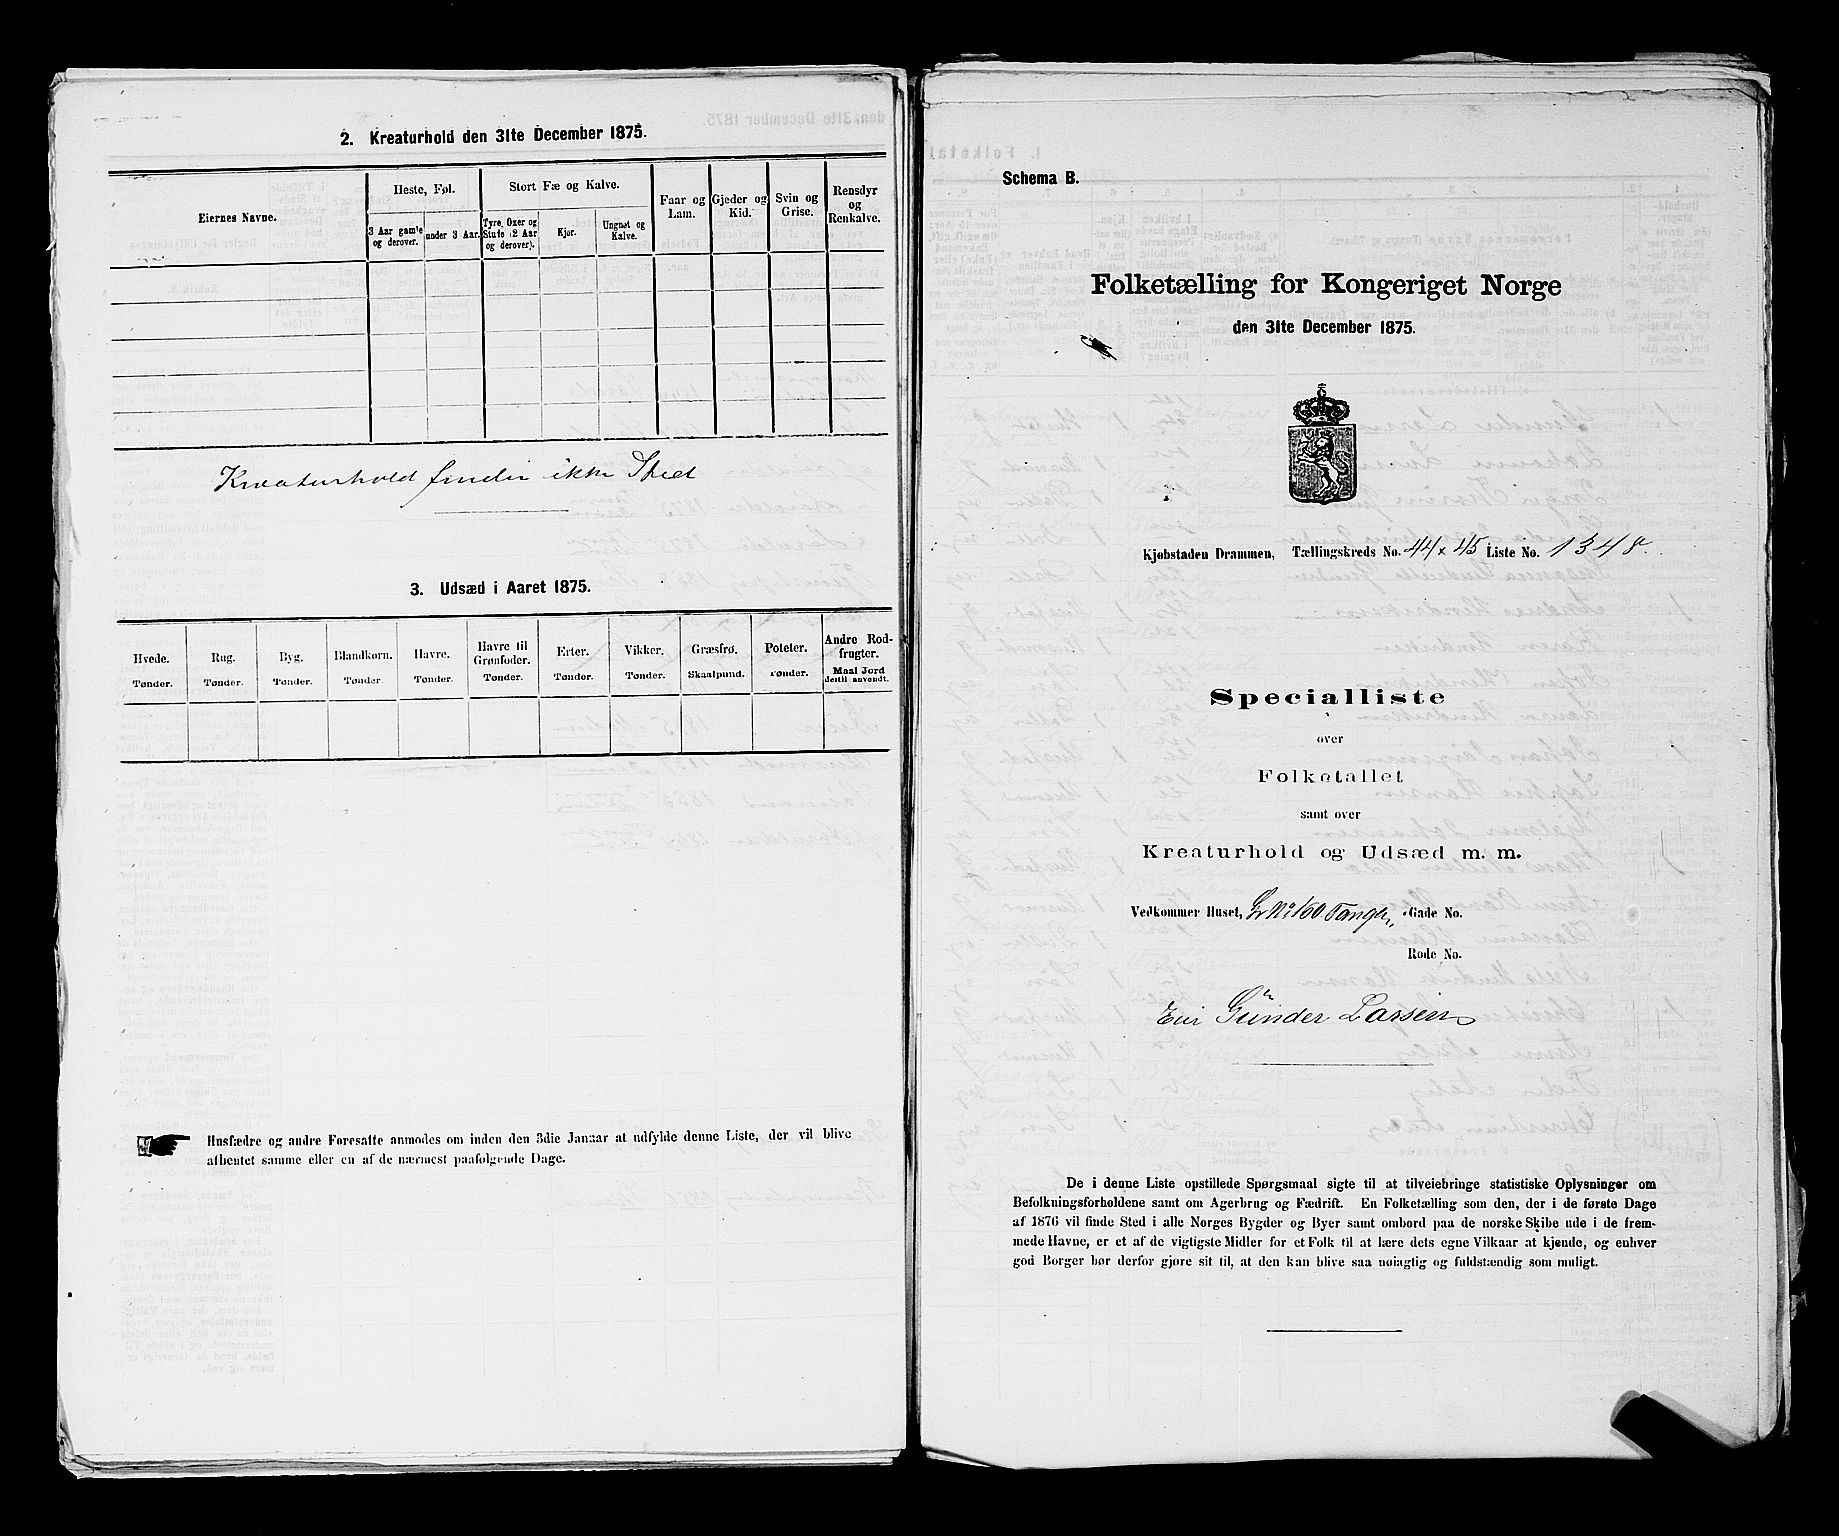 2. Kreaturhold den 31te December 1875.
Eiernes Navne.
Heste, Føl.
Stort Fæ og Kalve.
Faar og Lam.
Gjeder og Kid.
Svin og Grise.
Rensdyr og Renkalve.
3 Aar gamle og derover.
under 3 Aar.
Tyre, Oxer og Stude (2 Aar og derover).
Kjør.
Ungnøt og Kalve.
Kreaturhold finder ikke Sted
3. Udsæd i Aaret 1875.
Hvede. Tønder.
Rug. Tønder.
Byg. Tønder.
Blandkorn. Tønder.
Havre. Tønder.
Havre til Grønfoder. Tønder.
Erter. Tønder.
Vikker. Tønder.
Græsfrø. Skaalpund.
Poteter. Tønder.
Andre Rodfrugter. Maal Jord dertil anvendt.
Husfædre og andre Foresatte anmodes om inden den 3die Januar at udfylde denne Liste, der vil blive
afhentet samme eller en af de nærmest paafølgende Dage.
Schema B.
Folketælling for Kongeriget Norge
den 31te December 1875.
Kjøbstaden Drammen, Tællingskreds No. 44 x 45 Liste No. 1348.
Specialliste
over
Folketallet
samt over
Kreaturhold og Udsæd m. m.
Vedkommer Huset, Gr No 160 Tangen, Gade No.
Rode No.
Eier Gunder Larsen
De i denne Liste opstillede Spørgsmaal sigte til at tilveiebringe statistiske Oplysninger om
Befolkningsforholdene samt om Agerbrug og Fædrift. En Folketælling som den, der i de første Dage
af 1876 vil finde Sted i alle Norges Bygder og Byer samt ombord paa de norske Skibe ude i de frem-
mede Havne, er et af de vigtigste Midler for et Folk til at lære dets egne Vilkaar at kjende, og enhver
god Borger bør derfor gjøre sit til, at den kan blive saa nøiagtig og fuldstændig som muligt.